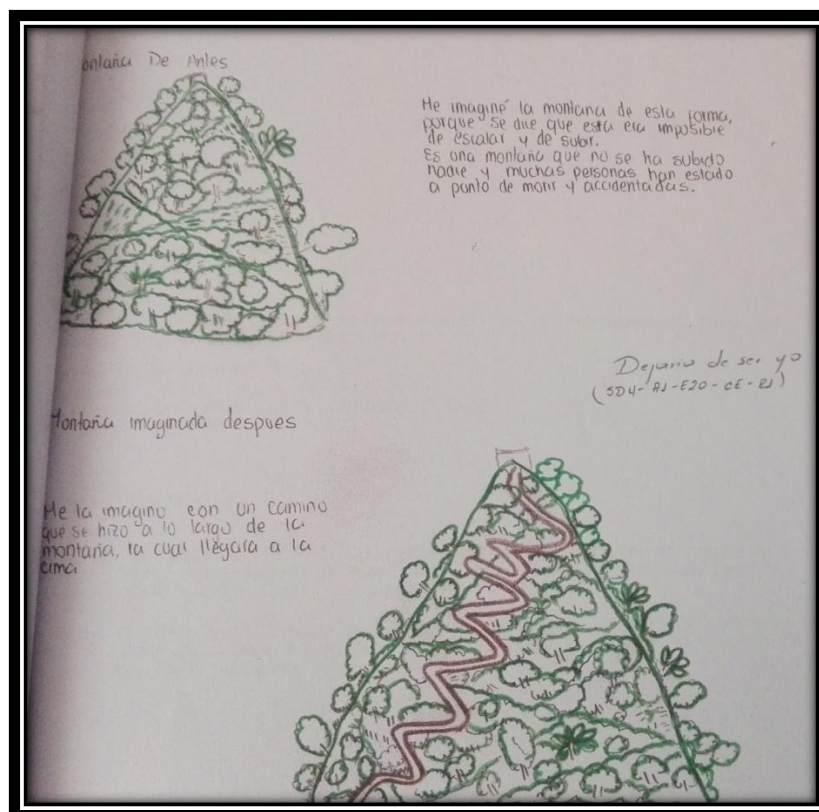 ontaña De Antes
Me imaginé la montaña de esta forma,
porque se dice que esta era imposible
de escalar y de subir.
Es una montaña que no se ha subido
nadie y muchas personas han estado
a punto de morir y accidentadas.
Dejaria de ser yo
(SD4-A1-E20-CE-
Montaña imaginada despues
Me la imagino con un camino
que se hizo a lo largo de la
montaña, la cual llegara a la
cima